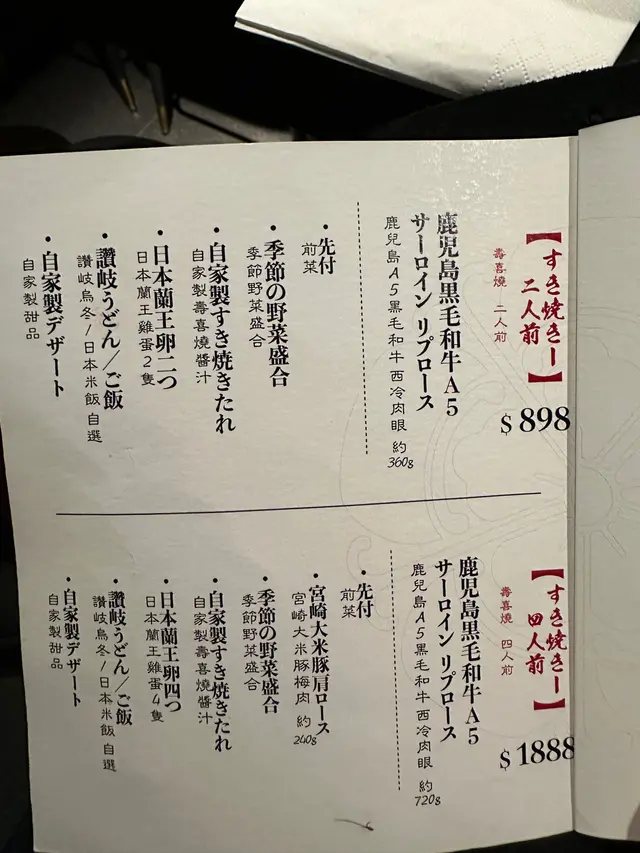 【すき焼きー
二人前】
壽喜燒 二人前
$898
鹿児島黒毛和牛A5
サーロイン リブロース
鹿兒島A5黑毛和牛西冷肉眼 約360g
・先付
前菜
・季節の野菜盛合
季節野菜盛合
・自家製すき焼きたれ
自家製壽喜燒醬汁
・日本蘭王卵二つ
日本蘭王雞蛋2隻
・讃岐うどん/ご飯
讚岐烏冬/日本米飯 自選
・自家製デザート
自家製甜品
【すき焼きー
四人前】
壽喜燒 四人前
$1888
鹿児島黒毛和牛A5
サーロイン リブロース
鹿兒島A5黑毛和牛西冷肉眼 約720g
・先付
前菜
・宮崎大米豚肩ロース
宮崎大米豚梅肉 約240g
・季節の野菜盛合
季節野菜盛合
・自家製すき焼きたれ
自家製壽喜燒醬汁
・日本蘭王卵四つ
日本蘭王雞蛋4隻
・讃岐うどん/ご飯
讚岐烏冬/日本米飯 自選
・自家製デザート
自家製甜品